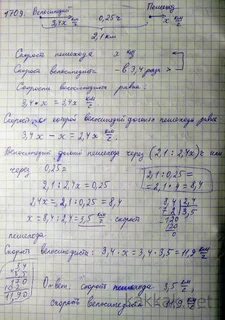 1709. Велосипедист Пешеход
3,4x км/ч 0,25 ч x км/ч
2,1 км
Скорость пешехода x км/ч
Скорость велосипедиста - в 3,4 раза >
Скорость велосипедиста равна:
3,4 • x = 3,4x км/ч
Скорость, с которой велосипедист догонял пешехода равна
3,4x - x = 2,4x км/ч.
Велосипедист догнал пешехода через (2,1 : 2,4x) ч или
через 0,25 ч
2,1 : 2,4x = 0,25
2,1 : 0,25 =
= 2,1 • 4 = 8,4
2,4x = 2,1 : 0,25 = 8,4
x = 8,4 : 2,4 = 3,5 км/ч скорость
пешехода.
8,4 | 2,4
72 | 3,5
120
120
0
Скорость велосипедиста: 3,4 • x = 3,4 • 3,5 = 11,9 км/ч
Ответ: скорость пешехода 3,5 км/ч
скорость велосипедиста 11,9 км/ч
3,4
3,5
170
102
11,90